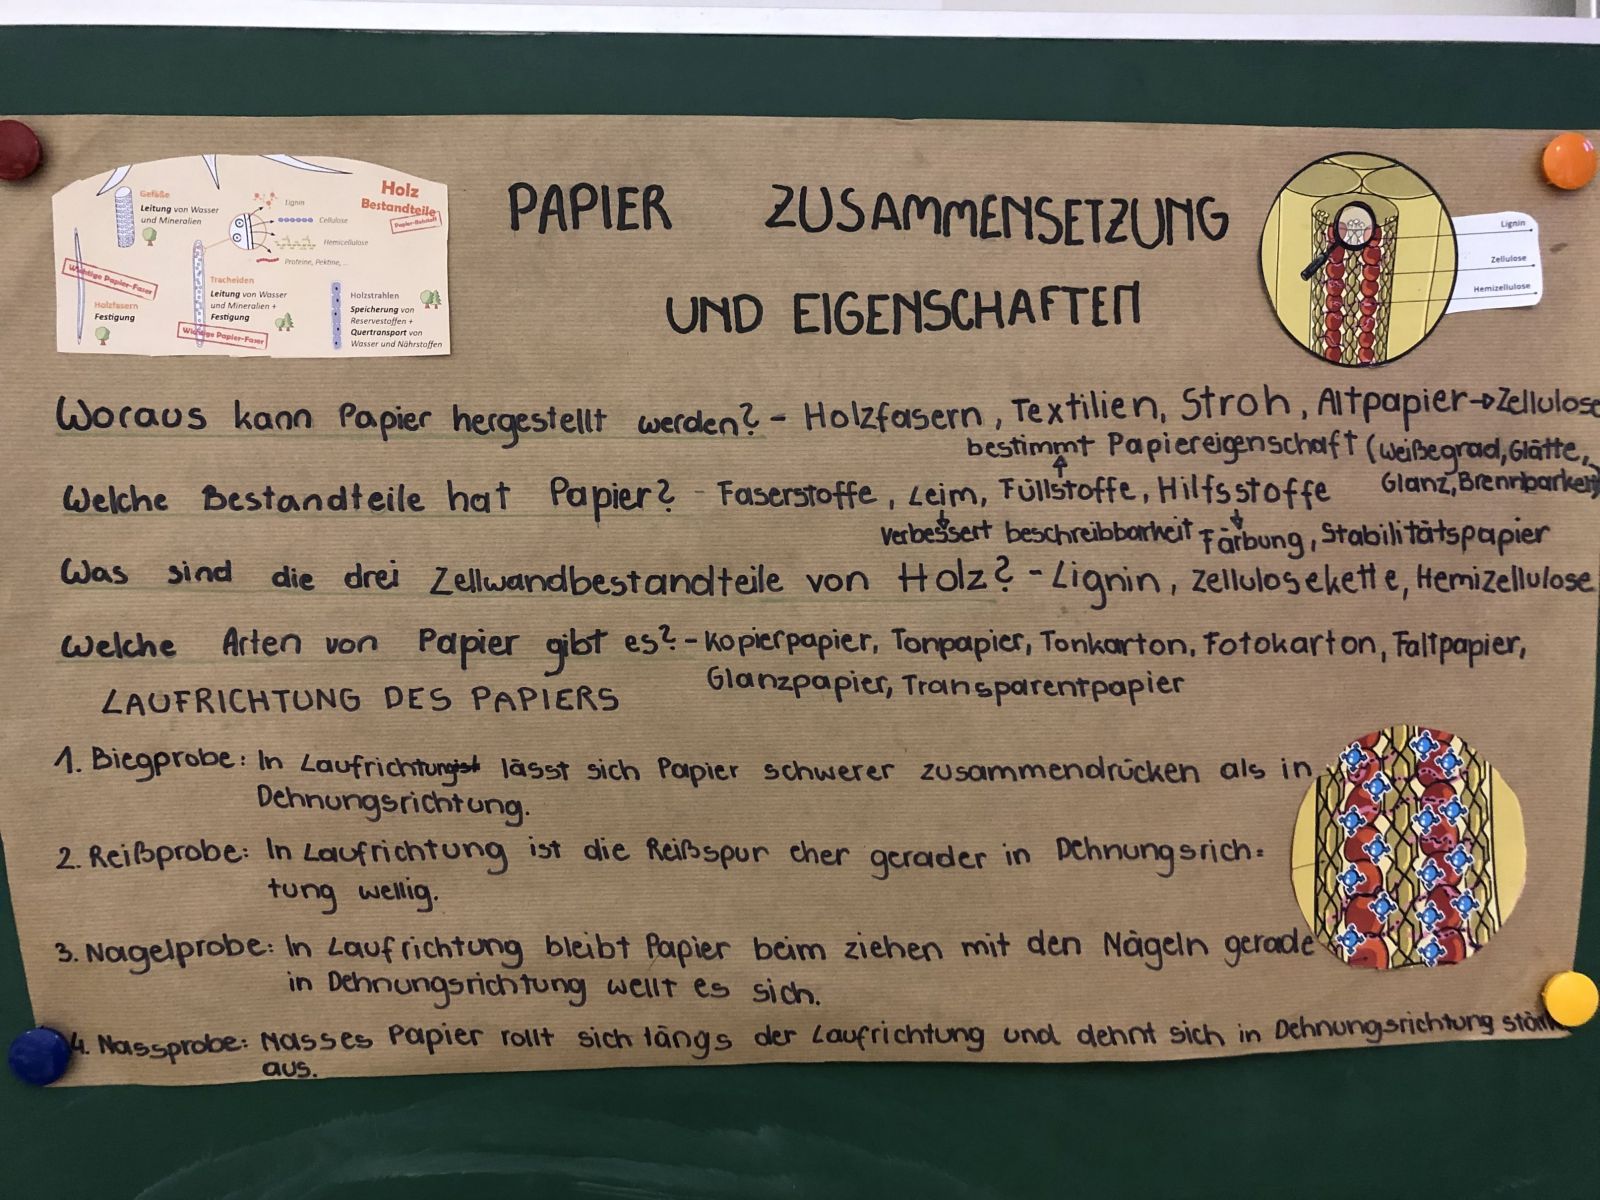 Holz
Bestandteile
Papier-Rohstoff
Gefäße
Leitung von Wasser
und Mineralien
Lignin
Cellulose
Hemicellulose
Proteine, Pektine, ...
Wichtige Papier-Faser
Holzfasern
Festigung
Tracheiden
Leitung von Wasser
und Mineralien +
Festigung
Wichtige Papier-Faser
Holzstrahlen
Speicherung von
Reservestoffen +
Quertransport von
Wasser und Nährstoffen
PAPIER ZUSAMMENSETZUNG
UND EIGENSCHAFTEN
Lignin
Zellulose
Hemizellulose
Woraus kann Papier hergestellt werden? - Holzfasern, Textilien, Stroh, Altpapier → Zellulose
bestimmt Papiereigenschaft (Weißegrad, Glätte,
Glanz, Brennbarkeit)
Welche Bestandteile hat Papier? - Faserstoffe, Leim, Füllstoffe, Hilfsstoffe
verbessert beschreibbarkeit Färbung, Stabilitätspapier
Was sind die drei Zellwandbestandteile von Holz? - Lignin, Zellulosekette, Hemizellulose
Welche Arten von Papier gibt es? - Kopierpapier, Tonpapier, Tonkarton, Fotokarton, Faltpapier,
Glanzpapier, Transparentpapier
LAUFRICHTUNG DES PAPIERS
1. Biegprobe: In Laufrichtung lässt sich Papier schwerer zusammendrücken als in
Dehnungsrichtung.
2. Reißprobe: In Laufrichtung ist die Reißspur eher gerader in Dehnungsrich=
tung wellig.
3. Nagelprobe: In Laufrichtung bleibt Papier beim ziehen mit den Nägeln gerade
in Dehnungsrichtung wellt es sich.
4. Nassprobe: Nasses Papier rollt sich längs der Laufrichtung und dehnt sich in Dehnungsrichtung
aus.